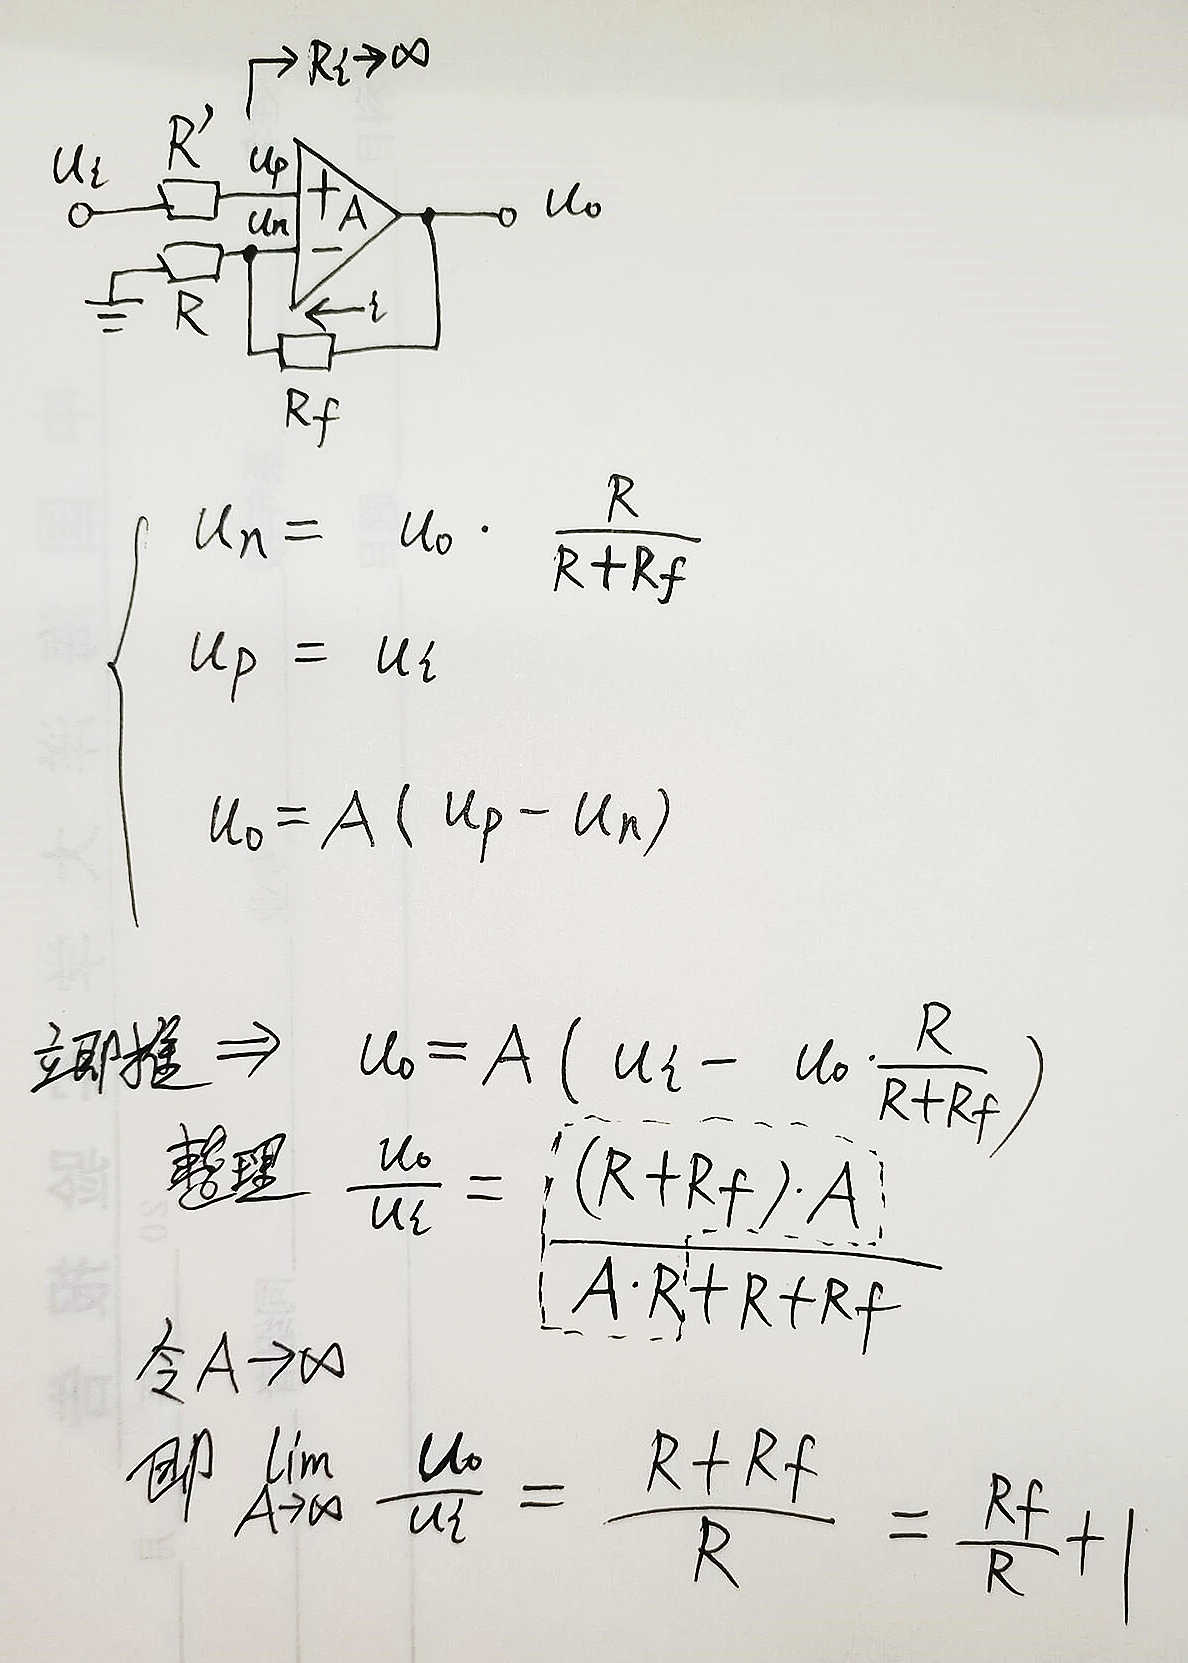 Ri→∞
ui R' up + A uo
un −
R ←i
Rf
un = uo · R/(R+Rf)
up = ui
uo = A(up − un)
立即推 ⇒ uo = A(ui − uo · R/(R+Rf))
整理 uo/ui = (R+Rf)·A/(A·R+R+Rf)
令A→∞
即 lim A→∞ uo/ui = (R+Rf)/R = Rf/R + 1